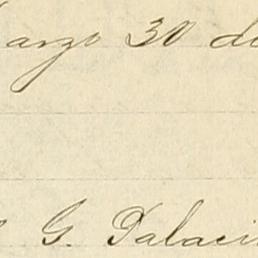 arzo 30 de
G. Palaci